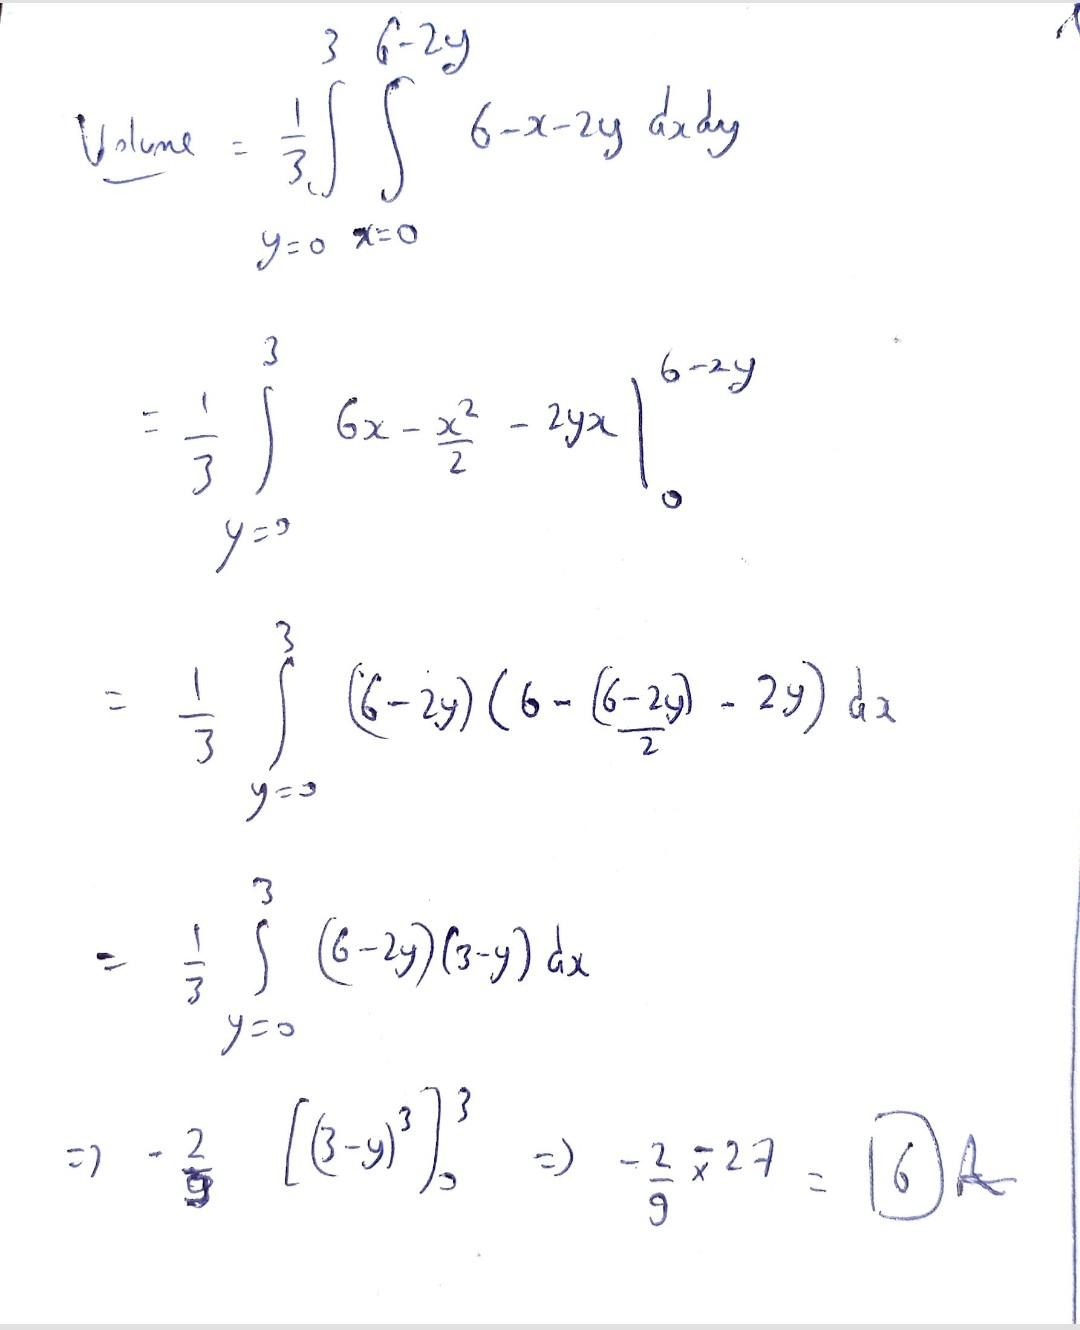 Volume = 1/3 ∫_{y=0}^{3} ∫_{x=0}^{6-2y} 6-x-2y dxdy
= 1/3 ∫_{y=0}^{3} 6x - x²/2 - 2yx |_0^{6-2y}
= 1/3 ∫_{y=0}^{3} (6-2y)(6 - (6-2y)/2 - 2y) dx
= 1/3 ∫_{y=0}^{3} (6-2y)(3-y) dx
=> -2/9 [(3-y)³]_0^3 => -2/9 × -27 = 6